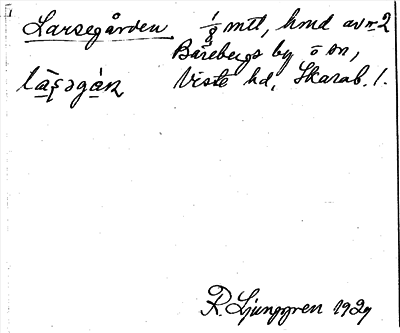 Larsegården 1/8 mtl, hmd av nr 2
Barebergs by o sn,
Viste hd, Skarab. l.
R. Ljunggren 1929